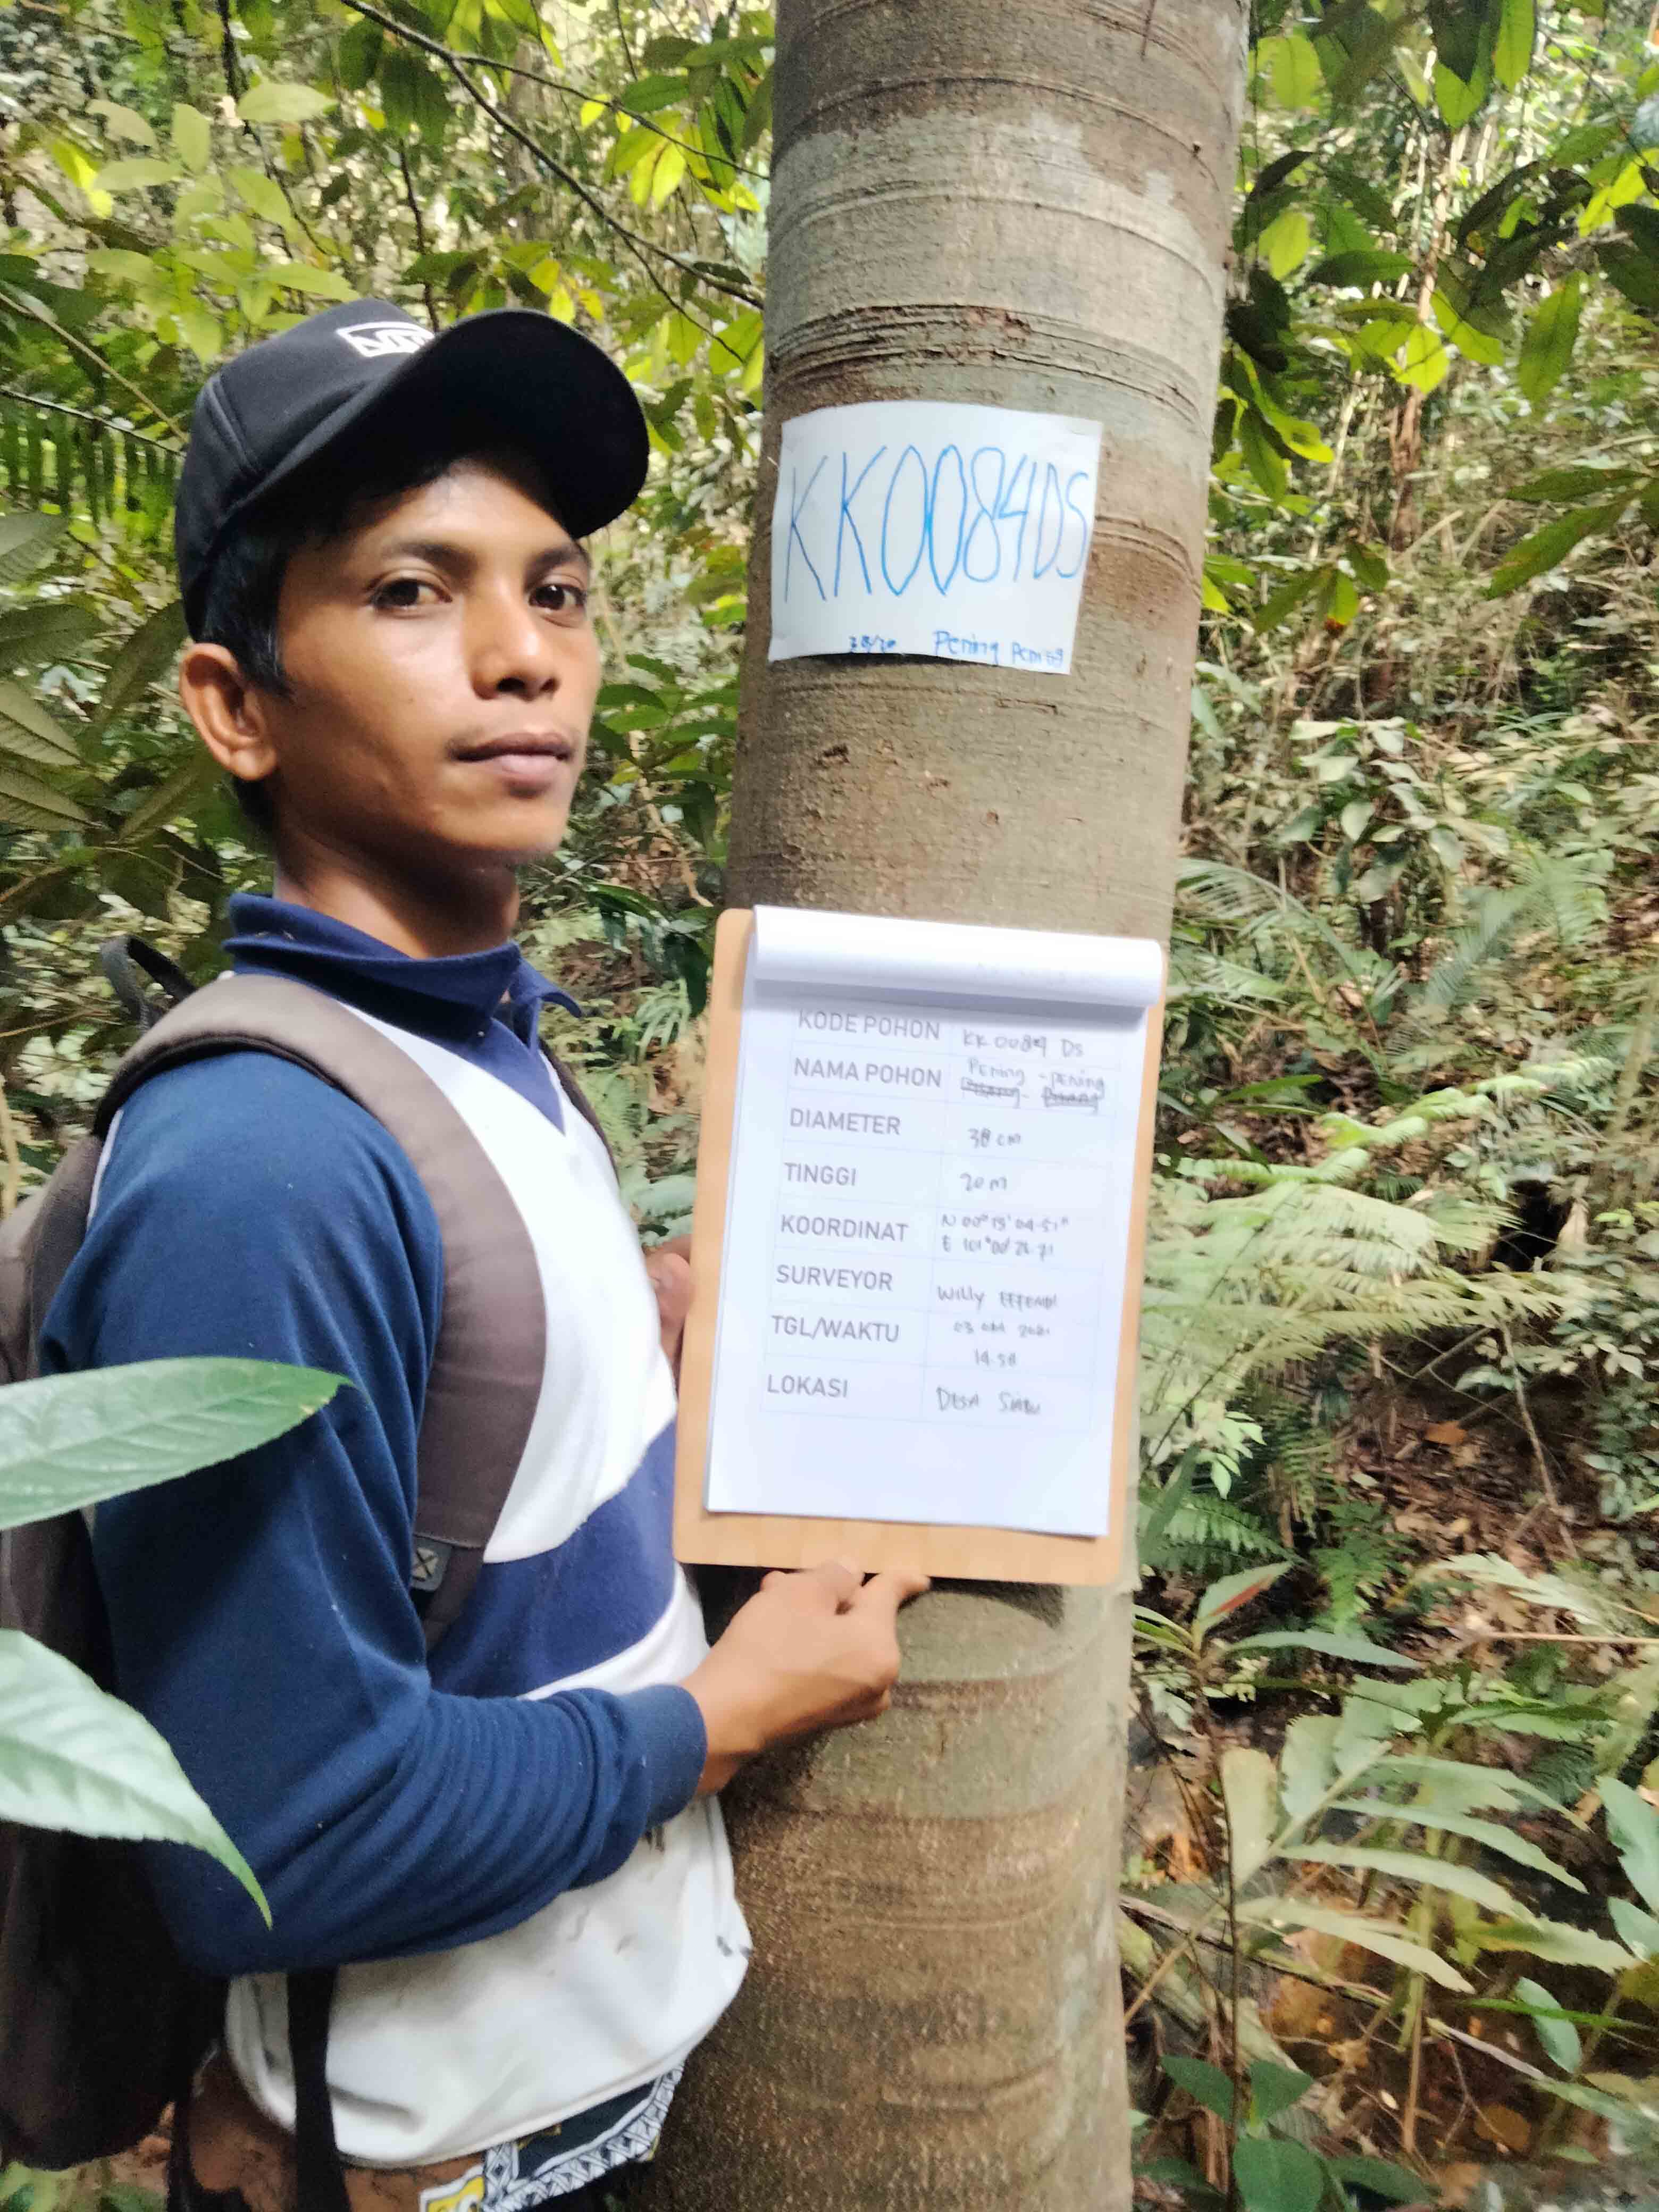 KK0084DS
38/20 Pening Pening
KODE POHON KK 0084 DS
NAMA POHON Pening - pening
DIAMETER 38 cm
TINGGI 20 m
KOORDINAT N 00° 15' 04.51"
E 101°00' 26.71
SURVEYOR Willy EFFENDI
TGL/WAKTU 03 2021
14.58
LOKASI DESA SIABU